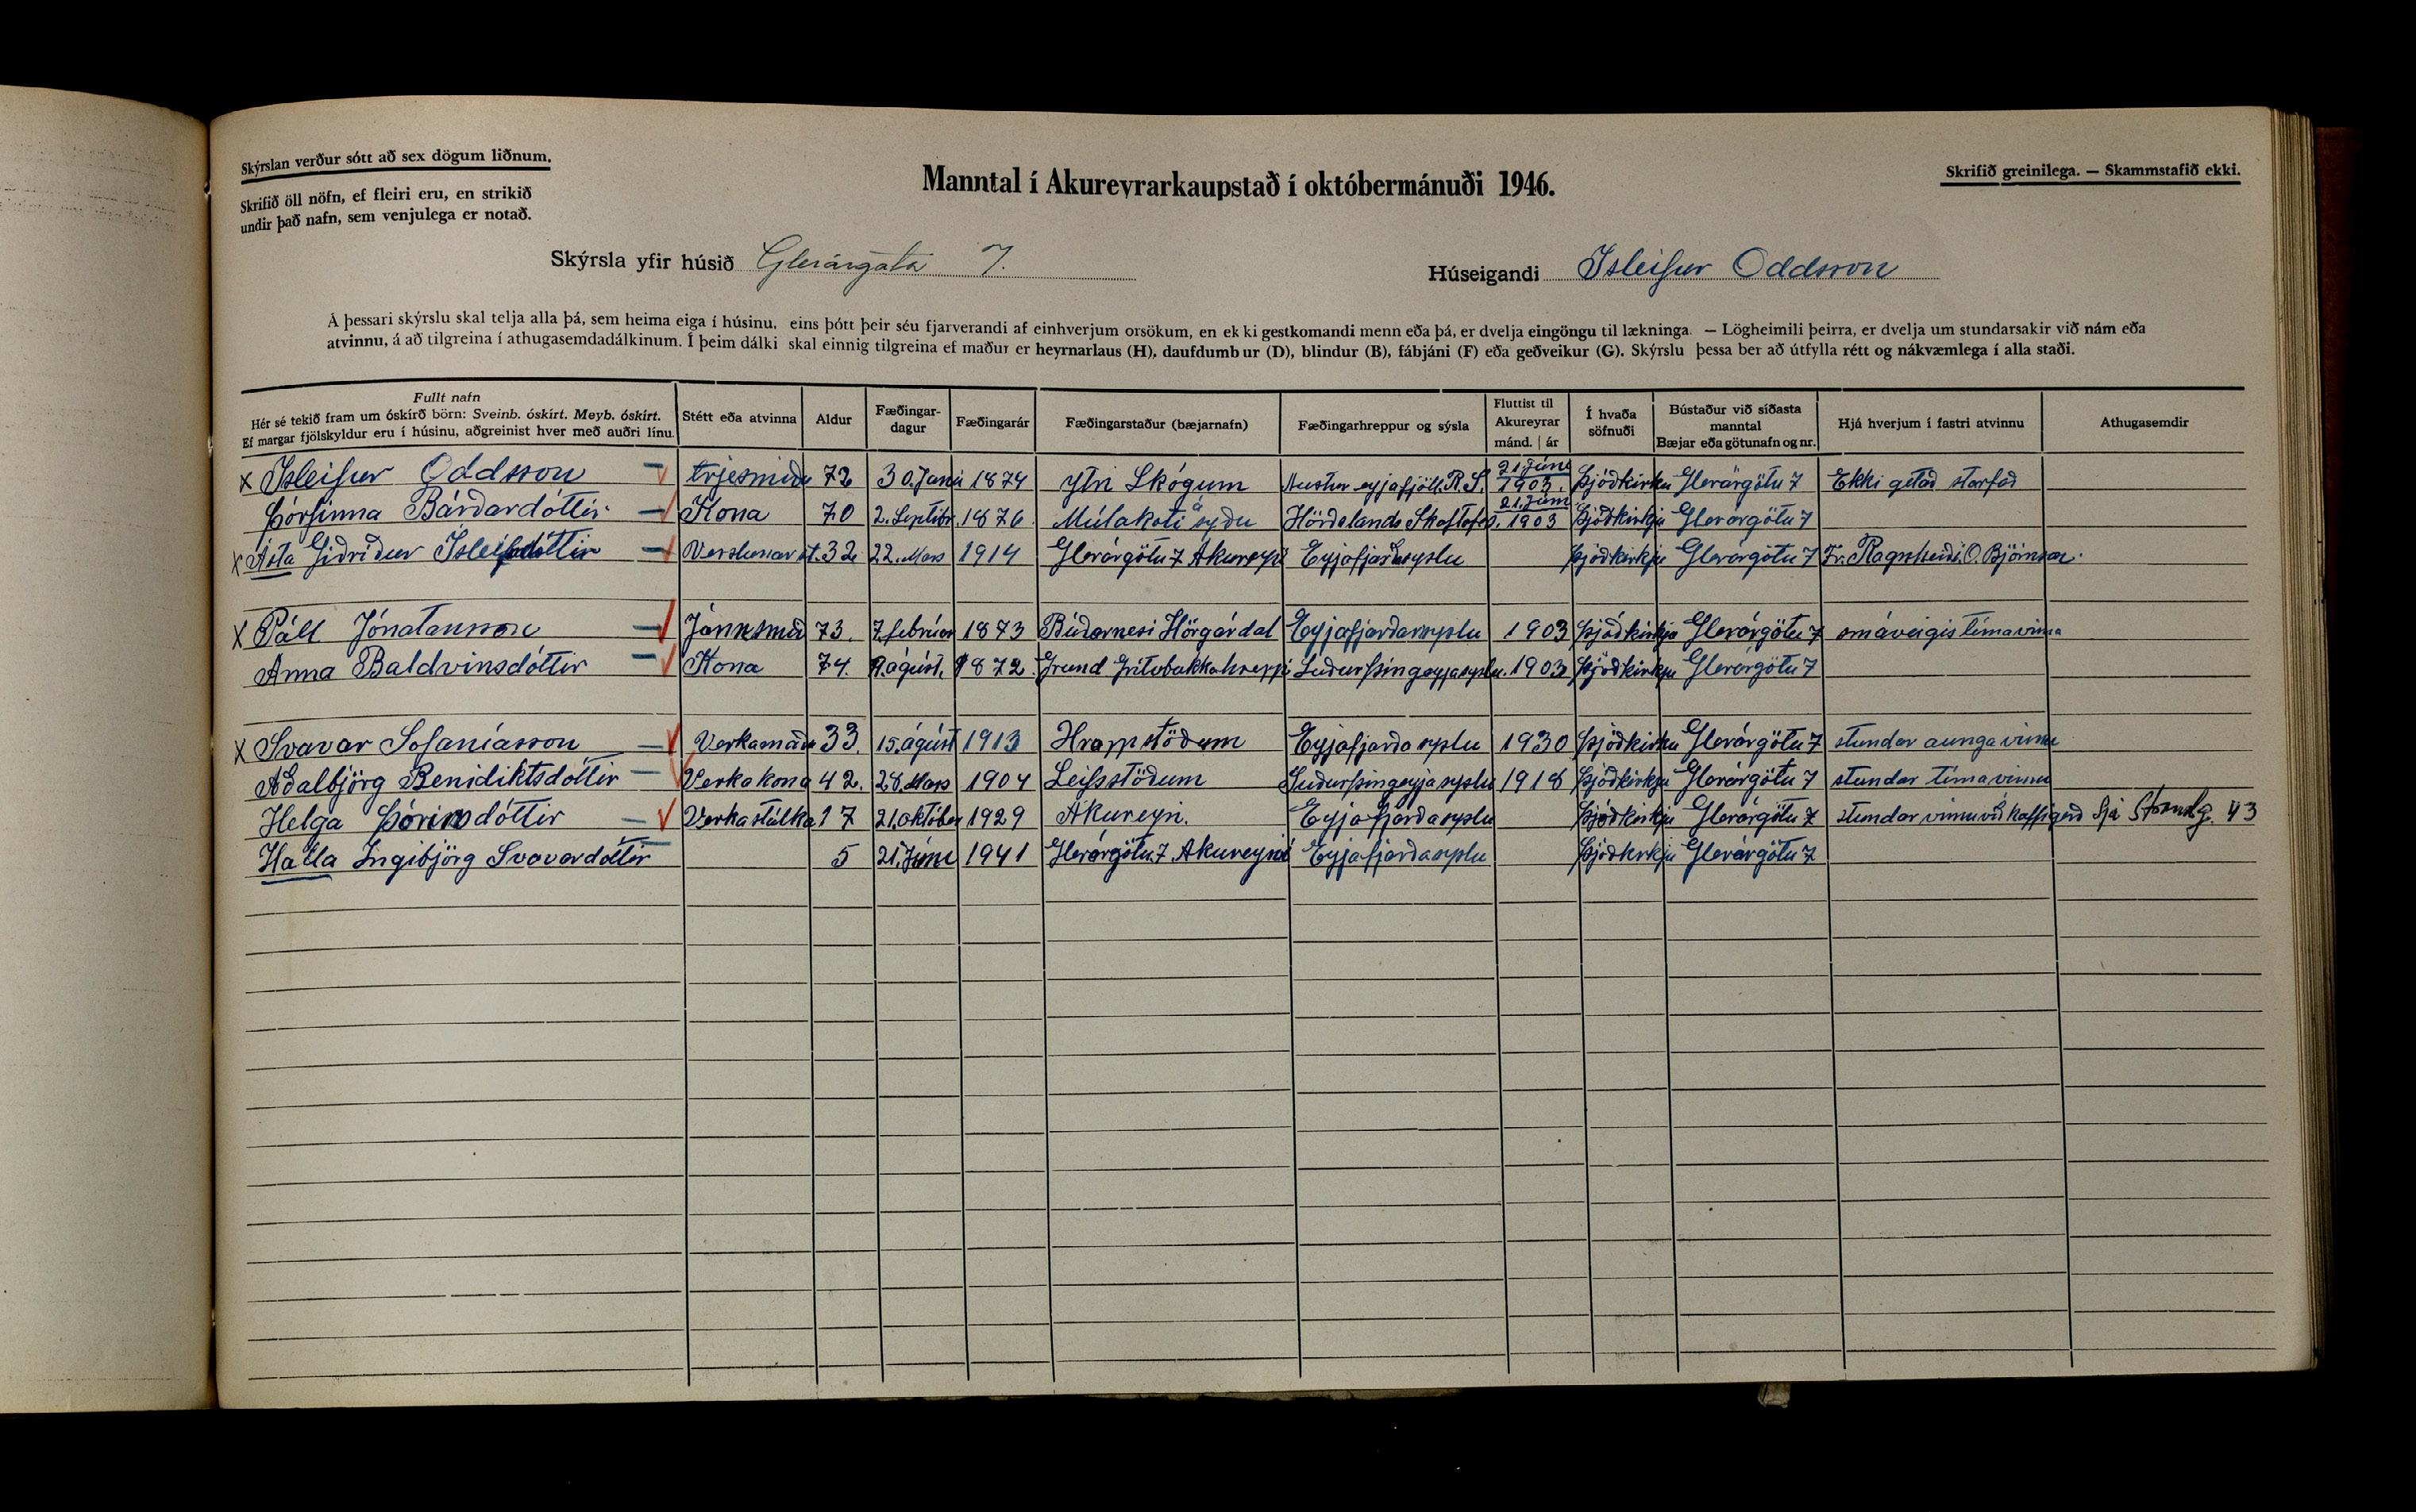 Skýrslan verður sótt að sex dögum liðnum.
Skrifið öll nöfn, ef fleiri eru, en strikið
undir það nafn, sem venjulega er notað.
Manntal í Akureyrarkaupstað í októbermánuði 1946.
Skrifið greinilega. — Skammstafið ekki.
Skýrsla yfir húsið Glerárgata 7.
Húseigandi Ísleifur Oddsson
Á þessari skýrslu skal telja alla þá, sem heima eiga í húsinu, eins þótt þeir séu fjarverandi af einhverjum orsökum, en ekki gestkomandi menn eða þá, er dvelja eingöngu til lækninga. — Lögheimili þeirra, er dvelja um stundarsakir við nám eða
atvinnu, á að tilgreina í athugasemdadálkinum. Í þeim dálki skal einnig tilgreina ef maður er heyrnarlaus (H), daufdumbur (D), blindur (B), fábjáni (F) eða geðveikur (G). Skýrslu þessa ber að útfylla rétt og nákvæmlega í alla staði.
Fullt nafn
Hér sé tekið fram um óskírð börn: Sveinb. óskírt. Meyb. óskírt.
Ef margar fjölskyldur eru í húsinu, aðgreinist hver með auðri línu.
Stétt eða atvinna
Aldur
Fæðingar-
dagur
Fæðingarár
Fæðingarstaður (bæjarnafn)
Fæðingarhreppur og sýsla
Fluttist til
Akureyrar
mánd. | ár
Í hvaða
söfnuði
Bústaður við síðasta
manntal
Bæjar eða götunafn og nr.
Hjá hverjum í fastri atvinnu
Athugasemdir
x Ísleifur Oddsson trjesmiðu 72 30. Janú 1874 Ytri Skógum Austur eyjafjöll. R.S. 21. Júni 1903. Þjóðkirku Glerárgötu 7 Ekki getað starfað
Þórfinna Bárðardóttir Kona 70 2. Septbr. 1876 Múlakoti á syðu Hörðslands Skaftafes. 21. Júni 1903 Þjóðkirkju Glerárgötu 7
x Ásta Giðríður Ísleifsdóttir Verslunar st. 32 22. Mars 1914 Glerárgötu 7 Akureyri Eyjafjarðarsyslu Þjóðkirkju Glerárgötu 7 Fr. Ragnheiði. O. Björnson.
x Páll Jónatansson Járnsmið 73. 7 febrúar 1873 Búðarnesi Hörgárdal Eyjafjarðarsyslu 1903 Þjóðkirkja Glerárgötu 7 smáveigis tímavinna
Anna Baldvinsdóttir Kona 74. 9. ágúst. 1872. Grund Gritubakkahreppi Suðurþingeyjasyslu. 1903 Þjóðkirkju Glerárgötu 7
x Svavar Sofaníasson Verkamaðu 33. 15. ágúst 1913 Hrappstöðum Eyjafjarðasyslu 1930 Þjóðkirku Glerárgötu 7 stundar aunga vinnu
Aðalbjörg Benidiktsdóttir Verkakona 42. 28. Mars 1904 Leifsstöðum Suðurþingeyjasyslu 1918 Þjóðkirkju Glerárgötu 7 stundar tímavinnu
Helga Þórirsdóttir Verkastúlka 17 21. október 1929 Akureyri. Eyjafjarðasyslu Þjóðkirkju Glerárgötu 7 stundar vinnu við kaffigerð Sjá Strandg. 43
Halla Ingibjörg Svavardóttir 5 21. Júni 1941 Glerárgötu 7 Akureyri Eyjafjarðasyslu Þjóðkrkju Glerárgötu 7